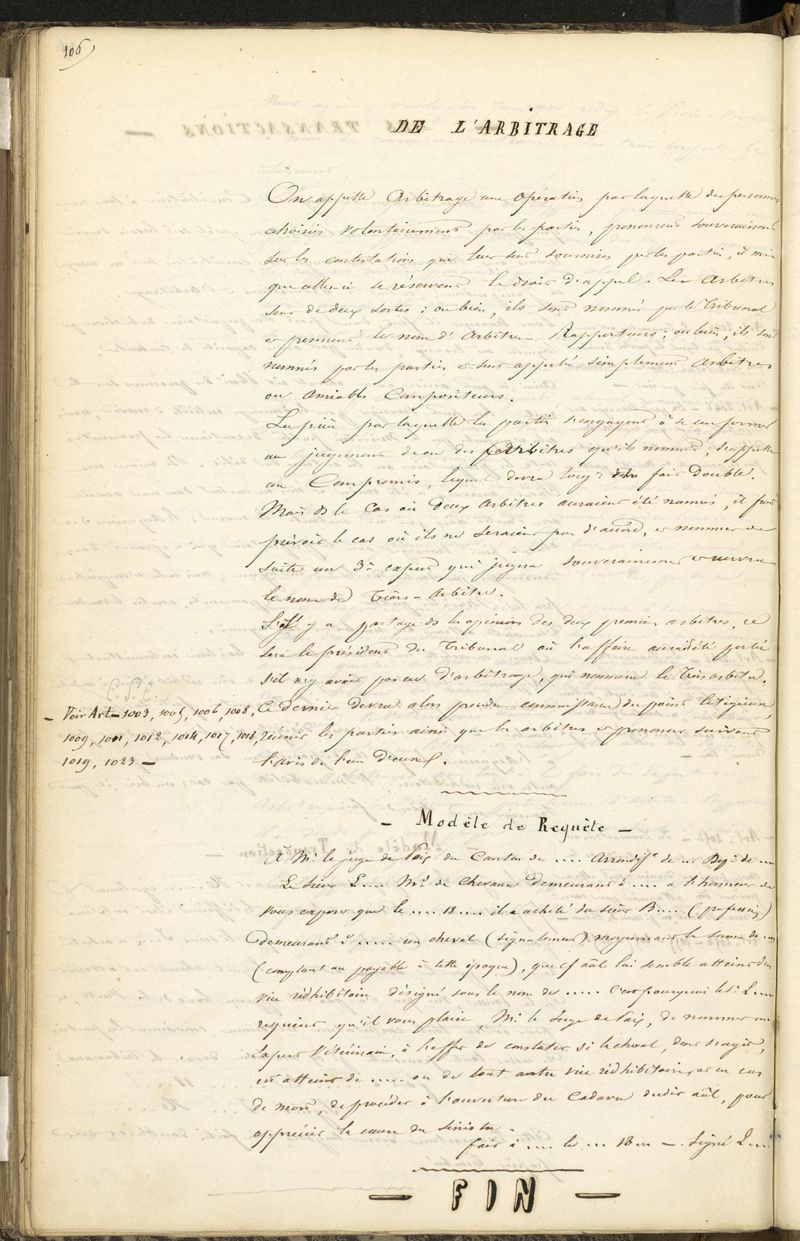 106
DE L'ARBITRAGE
On appelle Arbitrage une opération par laquelle des personnes
choisies volontairement par les parties, prononcent souverainement
sur les contestations qui leur sont soumises par les parties, à moins
que celles-ci se réservent le droit d'appel. Les Arbitres
sont de deux sortes : ou bien, ils sont nommés par le Tribunal
et prennent le nom d'Arbitres Rapporteurs ; ou bien, ils sont
nommés par les parties et sont appelés simplement arbitres
ou Amiables Compositeurs.
La pièce par laquelle les parties s'engagent à se conformer
au jugement des Arbitres qu'ils nomment, s'appelle
un Compromis, lequel devra toujs être fait Double.
Mais ds le Cas où Deux Arbitres auraient été nommés, il faut
prévoir le cas où ils ne seraient pas d'accord, et nommer de
suite un 3e expert qui jugera souverainement et recevra
le nom de Tiers-Arbitre.
S'il y a partage ds les opinions des deux premiers arbitres, ce
sera le président du Tribunal où l'affaire aurait été portée
s'il n'y avait pas eu d'arbitrage, qui nommera le Tiers arbitre.
Ce dernier devra alors prendre connaissance du point litigieux,
réunir les parties ainsi que les arbitres et prononcer suivant
l'avis de l'un d'eux.
C.P.C.
- Voir Art - 1003, 1005, 1006, 1008,
1009, 1011, 1012, 1014, 1017, 1018,
1019, 1023 -
- Modèle de Requête -
A Mr le juge de Paix du Canton de .... Arrondisst de ... Dept de ...
Le Sieur L.... Md de Chevaux demeurant à .... a l'honneur de
vous exposer que le .... 18.... il a acheté du sieur B.... (profession)
demeurant à ..... un cheval (signalement) moyennant la somme de ...
(comptant ou payable à telle époque), que cet aâl lui semble atteint d'un
vice rédhibitoire désigné sous le nom de ..... C'est pourquoi le sr L....
requiert qu'il vous plaise, Mr le Juge de Paix, de nommer un
Expert Vétérinaire, à l'effet de constater si le cheval, dont s'agit,
est atteint de .... ou de tout autre vice rédhibitoire, et en cas
de mort, de procéder à l'ouverture du Cadavre dudit aâl, pour
apprécier la cause du sinistre.
fait à ... le ... 18... - Signé L...
- FIN -